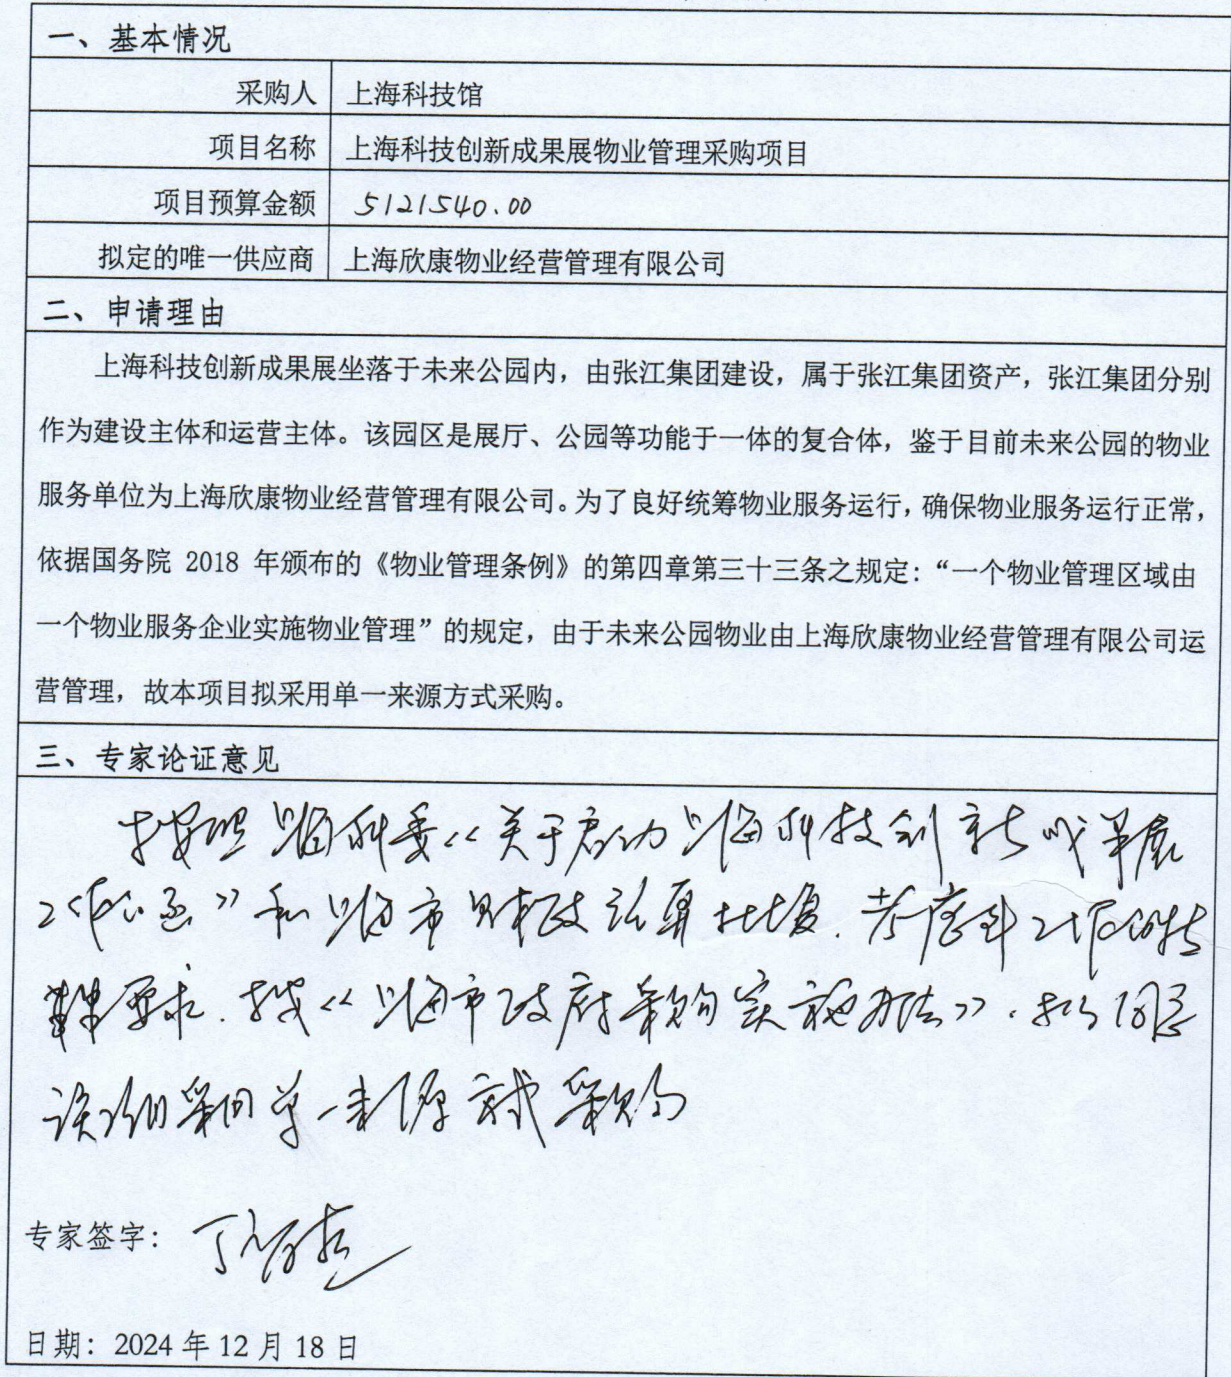 一、基本情况
采购人 上海科技馆
项目名称 上海科技创新成果展物业管理采购项目
项目预算金额 5121540.00
拟定的唯一供应商 上海欣康物业经营管理有限公司
二、申请理由
上海科技创新成果展坐落于未来公园内，由张江集团建设，属于张江集团资产，张江集团分别
作为建设主体和运营主体。该园区是展厅、公园等功能于一体的复合体，鉴于目前未来公园的物业
服务单位为上海欣康物业经营管理有限公司。为了良好统筹物业服务运行，确保物业服务运行正常，
依据国务院 2018 年颁布的《物业管理条例》的第四章第三十三条之规定：“一个物业管理区域由
一个物业服务企业实施物业管理”的规定，由于未来公园物业由上海欣康物业经营管理有限公司运
营管理，故本项目拟采用单一来源方式采购。
三、专家论证意见
按照上海科委《关于启动上海科技创新成果展
工作公函》和上海市财政预算批复.考虑到工作的特
要求.按《上海市政府采购实施办法》.拟同意
该项采用单一来源方式采购
专家签字：丁
日期：2024 年 12 月 18 日